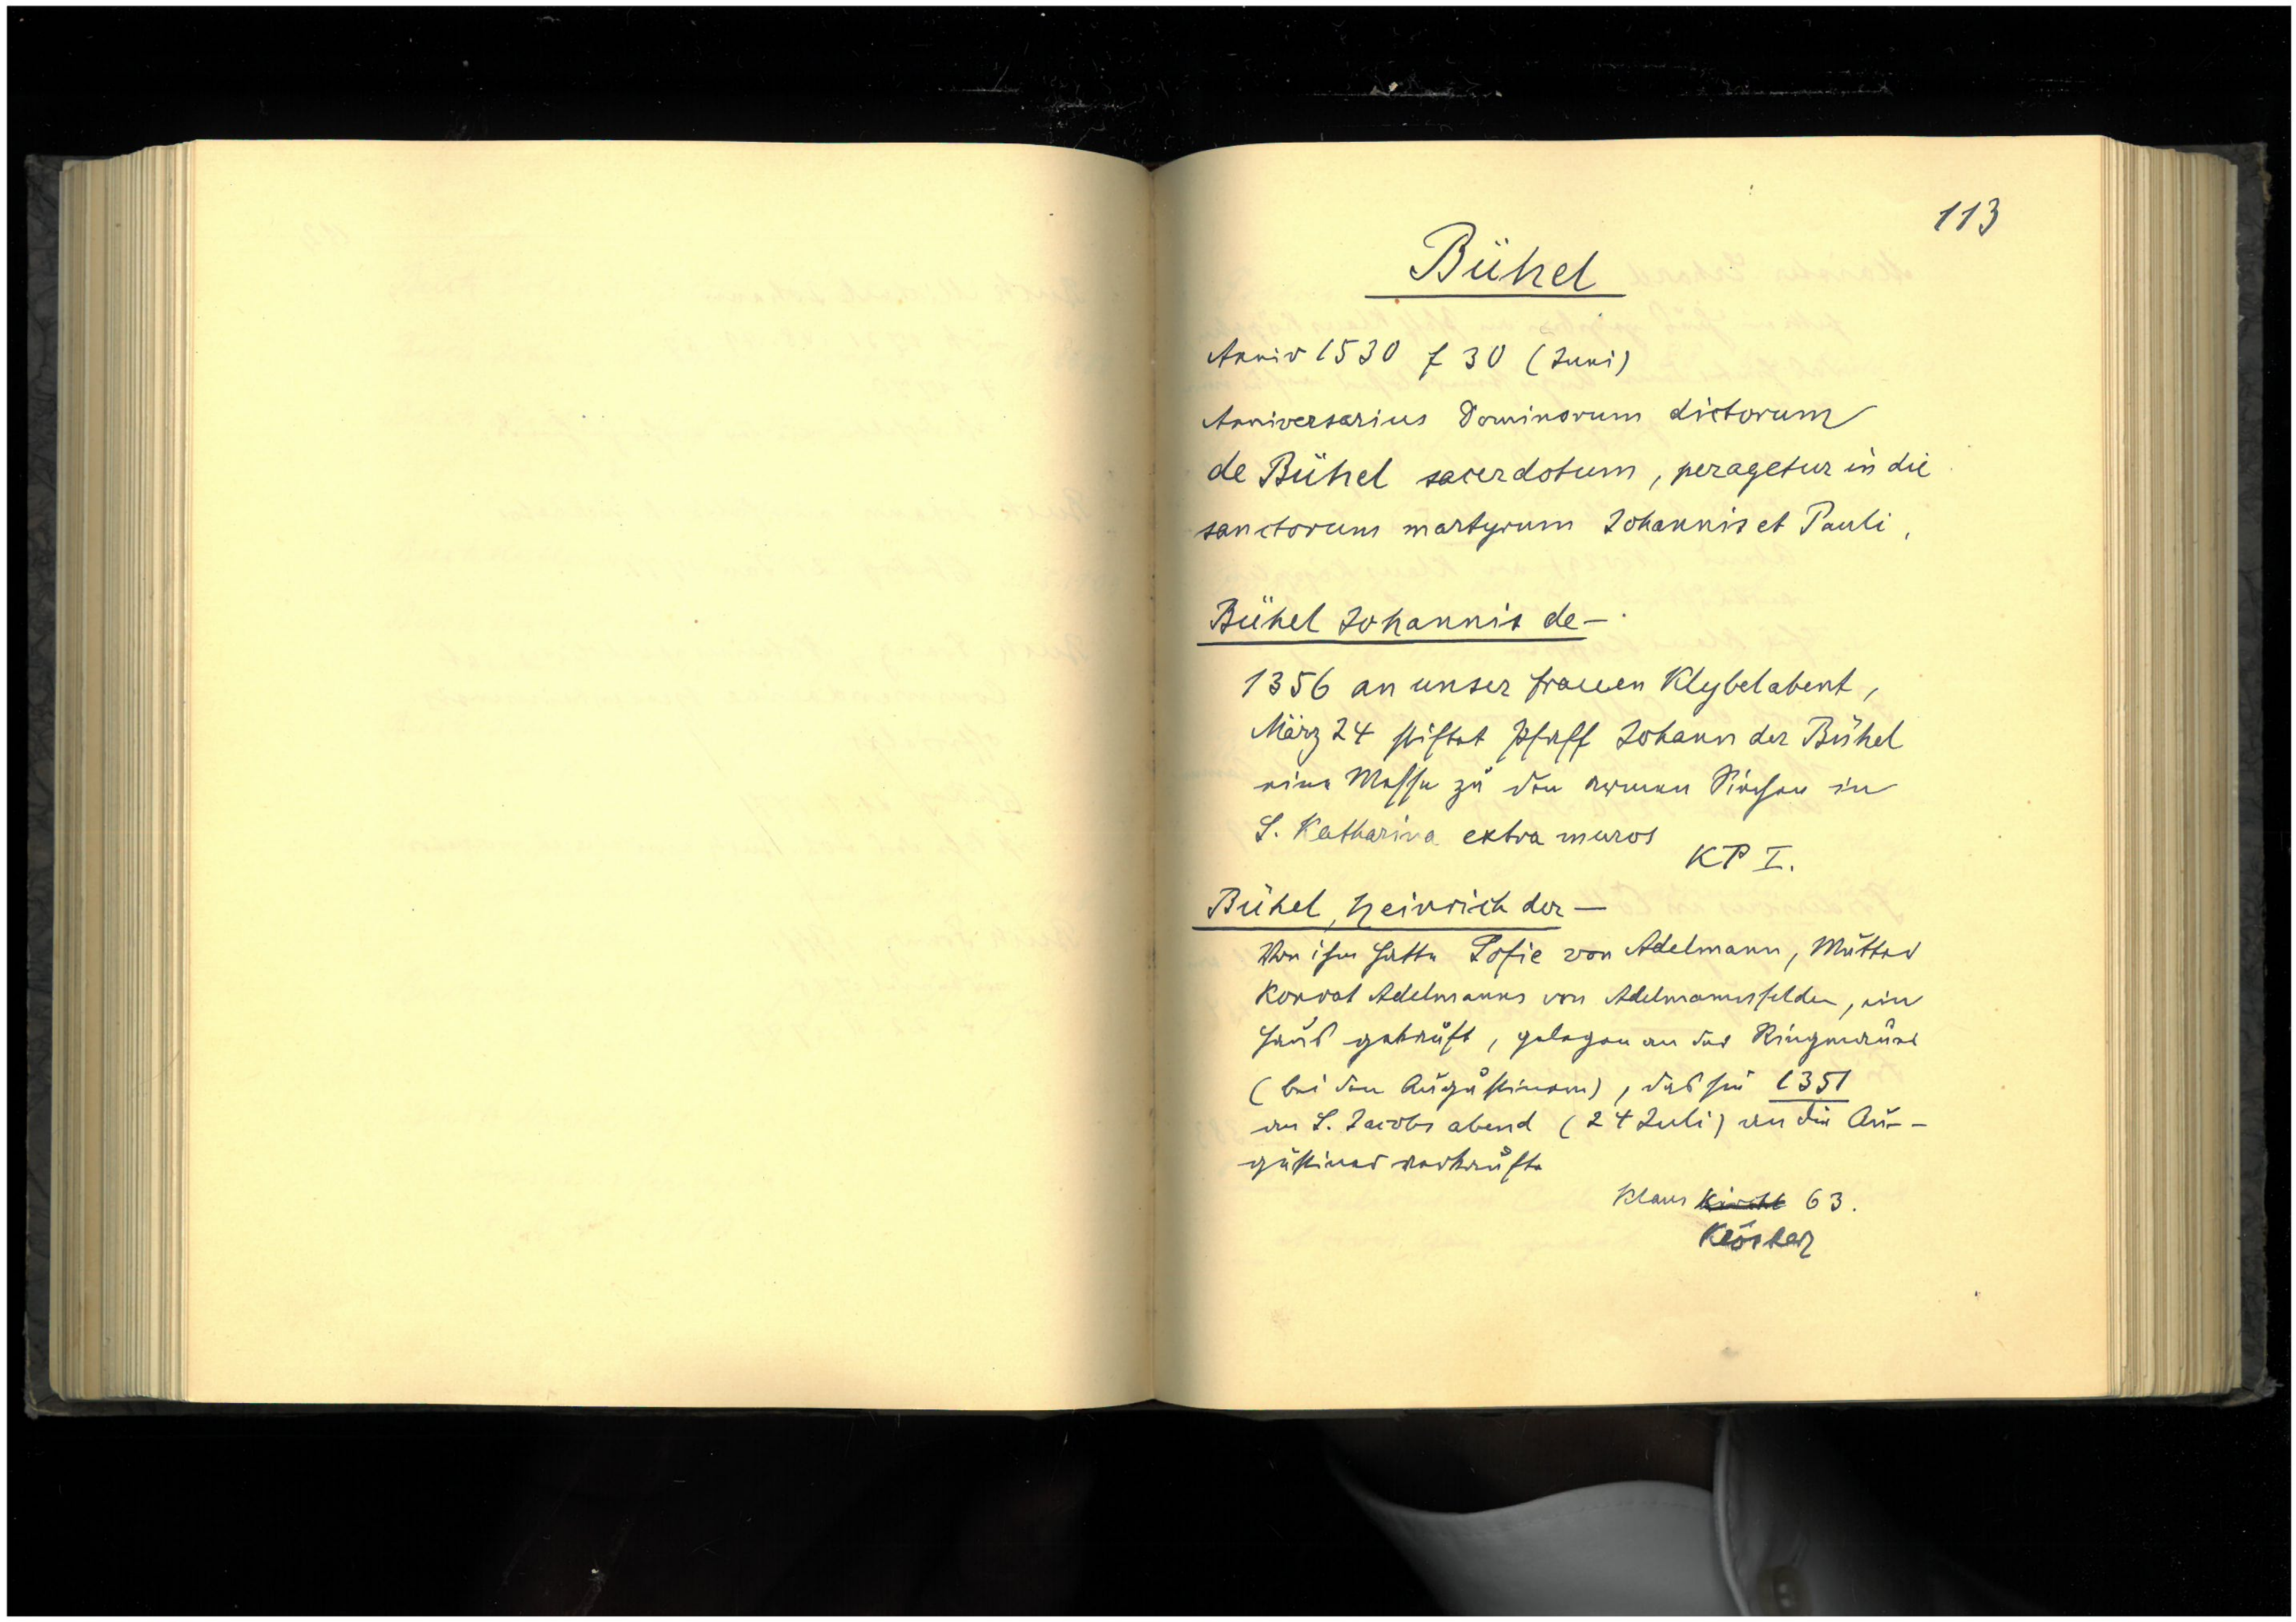 113
Bühel
Anniv 1530 f 30 (Juni)
Anniversarius Dominorum dictorum
de Bühel sacerdotum, peragetur in die
sanctorum martyrum Johannis et Pauli,
Bühel Johannis de —
1356 an unser frauen Klybelabent,
März 24 stiftet Pfaff Johann der Bühel
eine Messe zu den armen Siechen in
S. Katharina extra muros
KP I.
Bühel, Heinrich der —
Von ihm hatte Sofie von Adelmann, Mutter
Konrat Adelmanns von Adelmannsfelden, ein
Haus gekauft, gelegen an der Ringmauer
(bei den Augustinern), das sie 1351
an S. Jacobs abend (24 Juli) an die Au-
gustiner verkaufte
Klaus Kirche 63.
Klöster